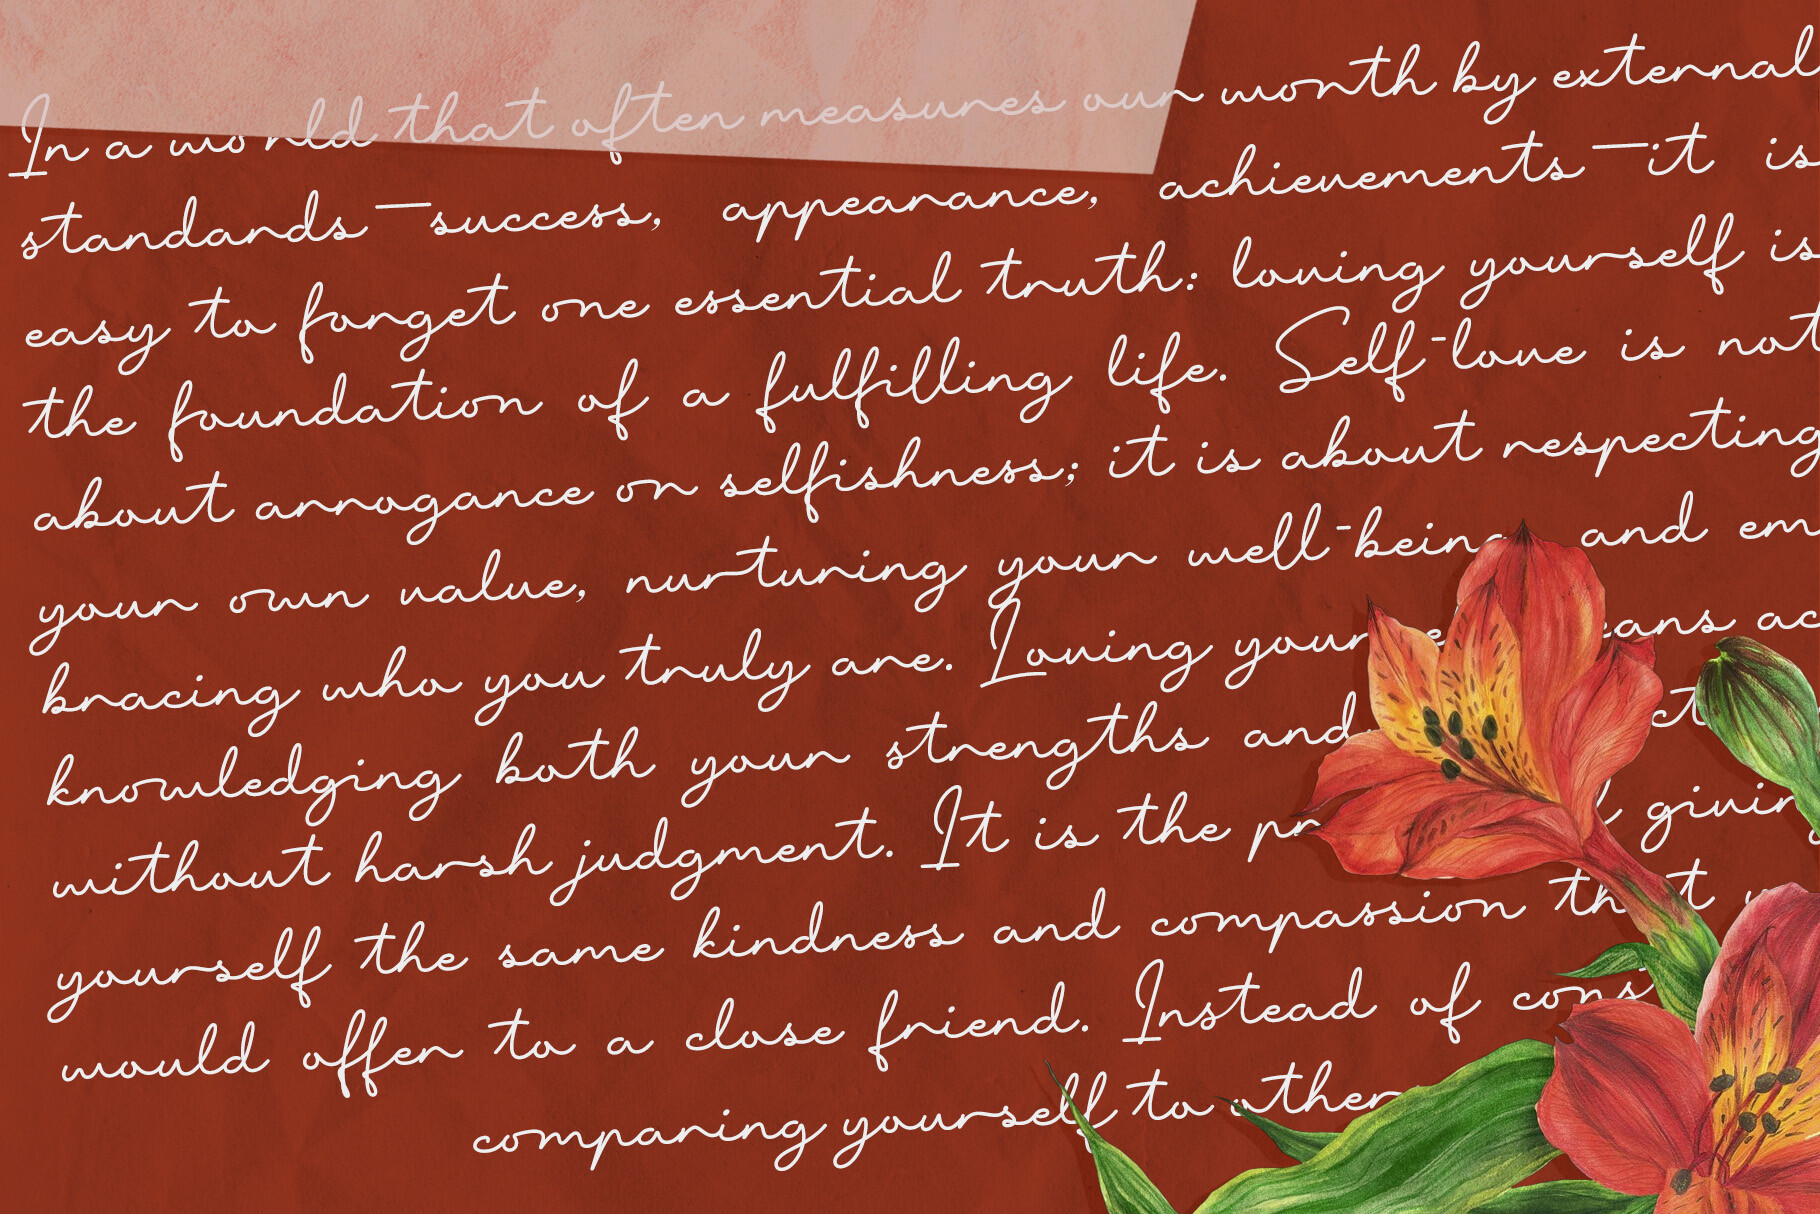 In a world that often measures our worth by external
standards—success, appearance, achievements—it is
easy to forget one essential truth: loving yourself is
the foundation of a fulfilling life. Self-love is not
about arrogance or selfishness; it is about respecting
your own value, nurturing your well-being and em
bracing who you truly are. Loving ac
knowledging both your strengths and
without harsh judgment. It is the giving
yourself the same kindness and compassion that
would offer to a close friend. Instead of
comparing yourself to other